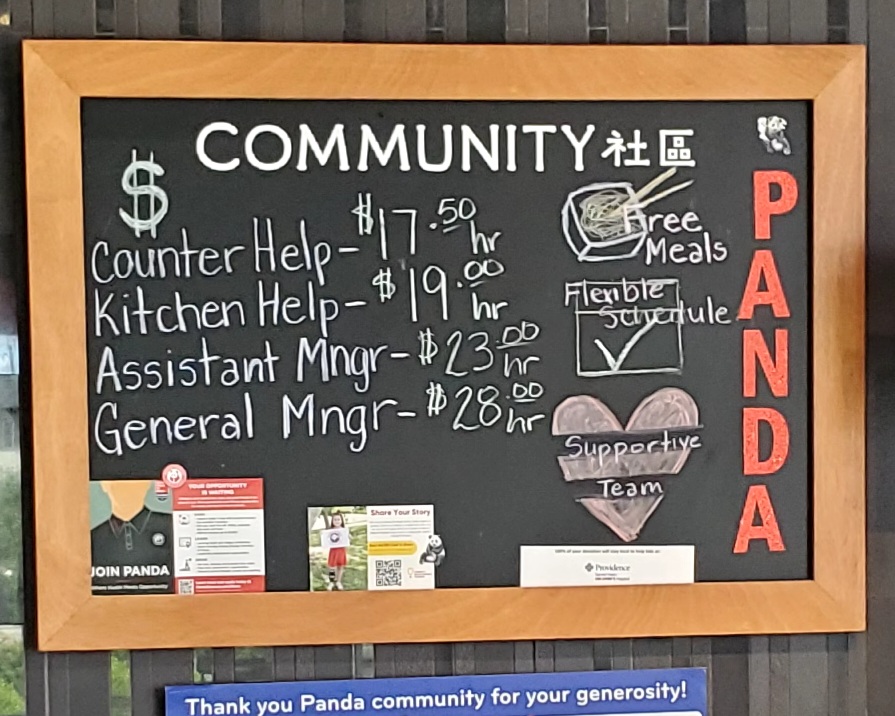 COMMUNITY 社區
$
Counter Help - $17.50 hr
Kitchen Help - $19.00 hr
Assistant Mngr - $23.00 hr
General Mngr - $28.00 hr
Free
Meals
Flexible
Schedule
Supportive
Team
PANDA
YOUR OPPORTUNITY
IS WAITING
JOIN PANDA
Share Your Story
Providence
Thank you Panda community for your generosity!